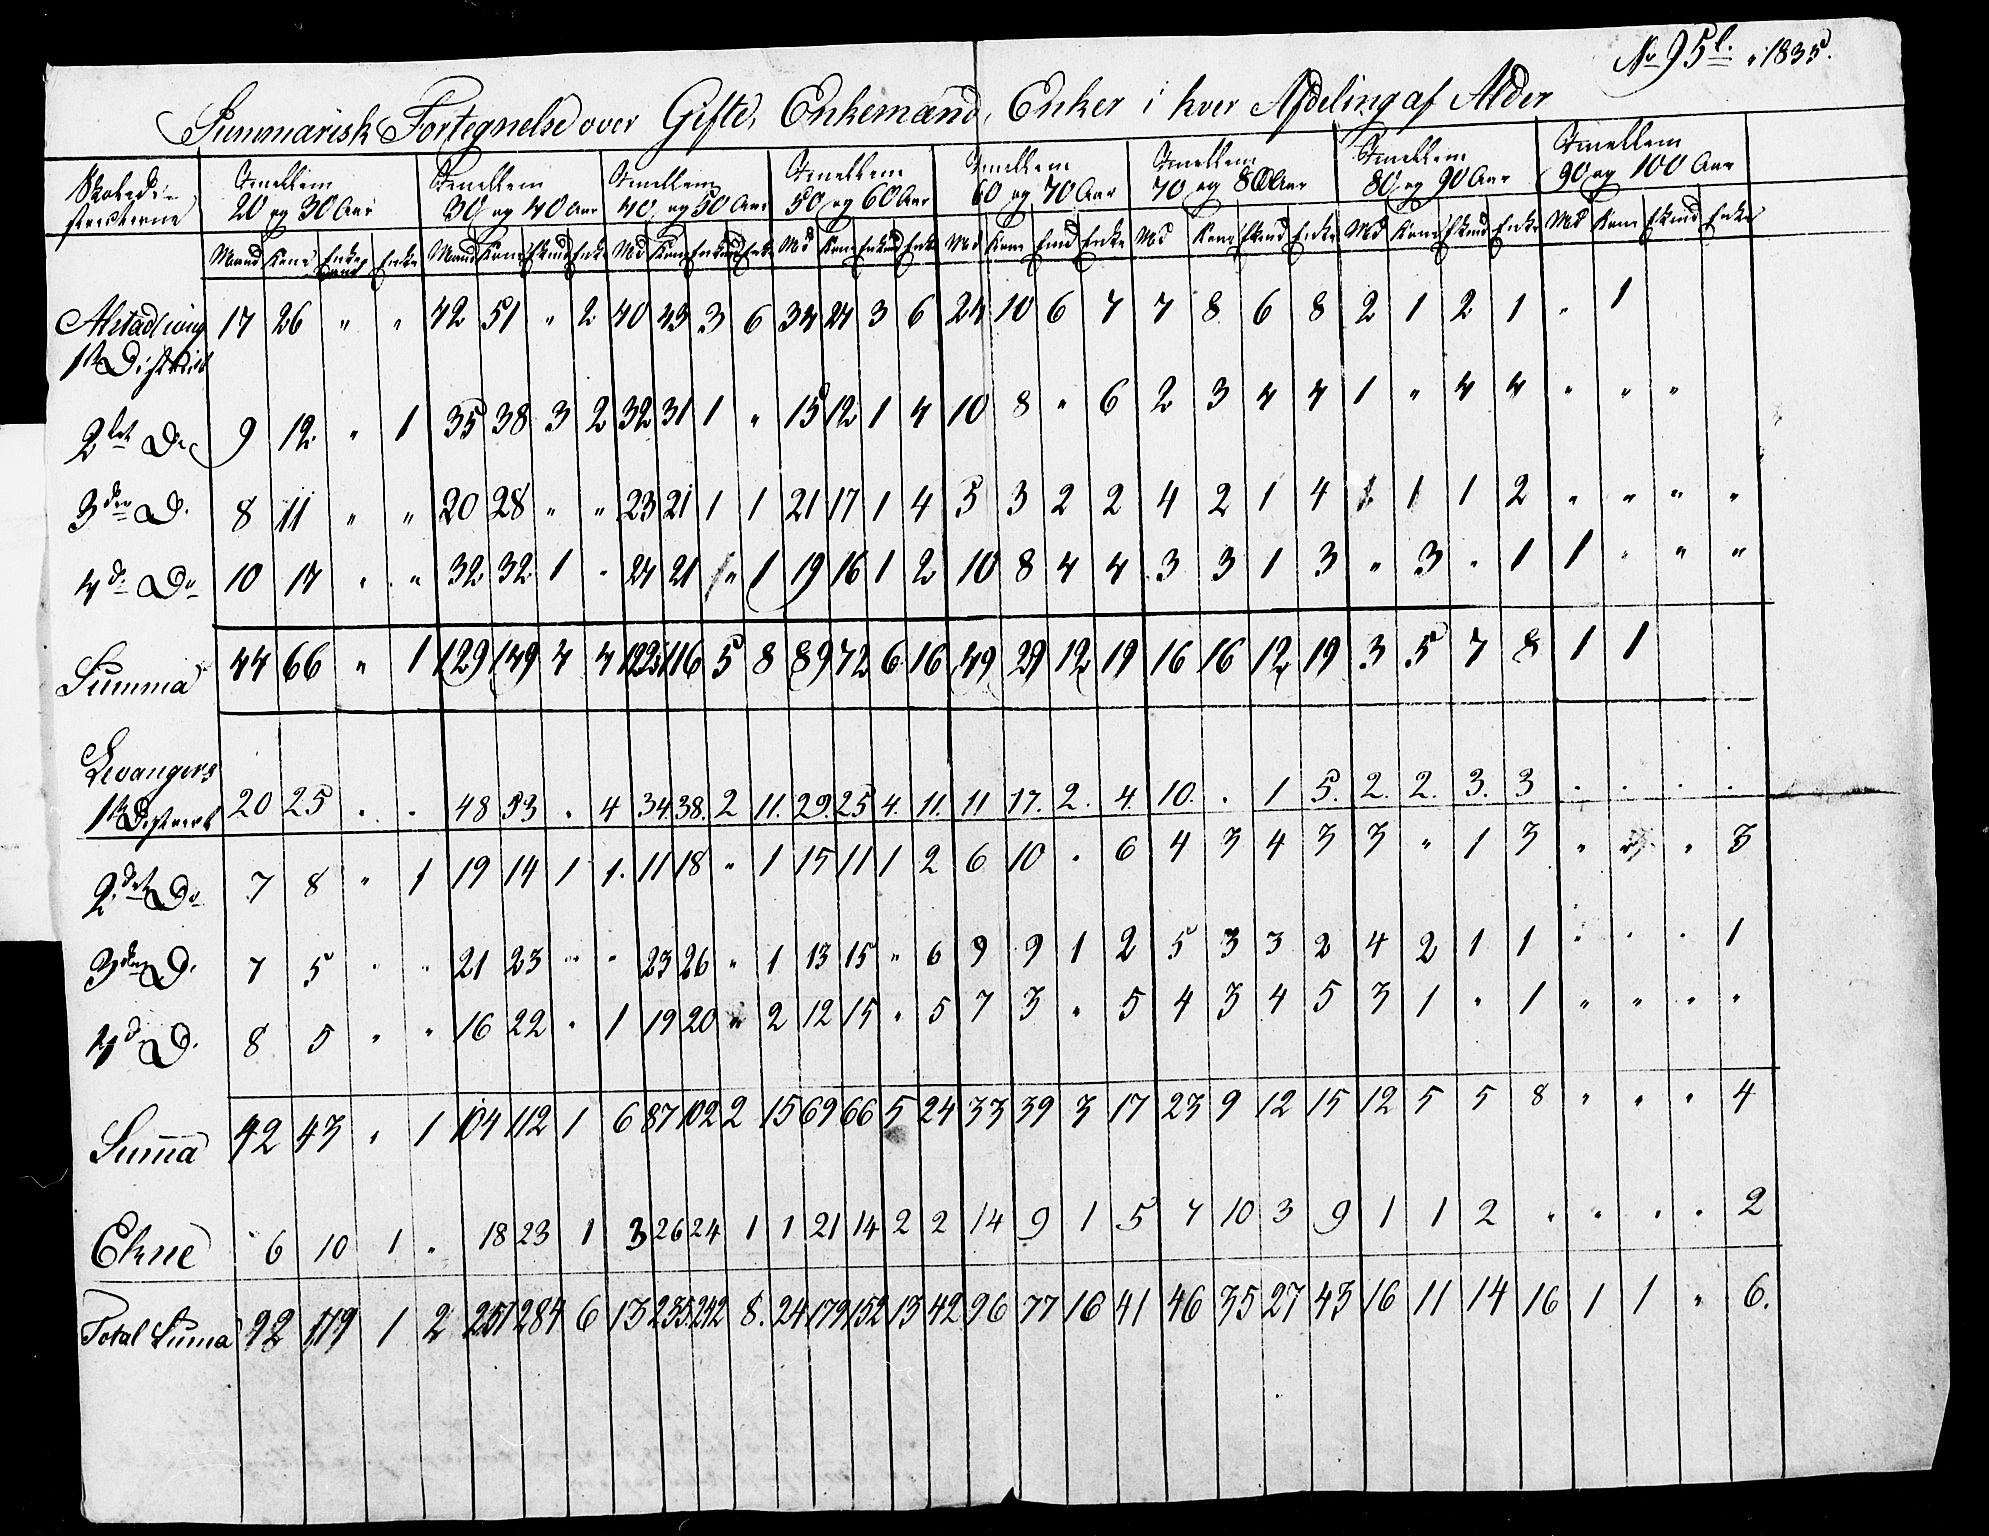 No 95 l. 1835.
Summarisk Fortegnelse over Gifte, Enkemænd, Enker i hver Afdeling af Alder
Skoledi- Imellem Imellem Imellem Imellem Imellem Imellem Imellem Imellem
stricterne 20 og 30 Aar 30 og 40 Aar 40 og 50 Aar 50 og 60 Aar 60 og 70 Aar 70 og 80 Aar 80 og 90 Aar 90 og 100 Aar
Mand Kone Enkemand Enke Mand Kone Ekmd Enke Md Kone Enkmd Enke Md Kone Enkmd Enke Md Kone Emd Enke Md Kone Ekmd Enke Md Kone Ekmd Enke Md Kone Ekmd Enke
Alstadhoug 17 26 " " 42 51 " 2 40 43 3 6 34 27 3 6 24 10 6 7 7 8 6 8 2 1 2 1 " 1
1te District
2det Do 9 12 " 1 35 38 3 2 32 31 1 " 15 12 1 4 10 8 " 6 2 3 4 4 1 " 4 4 " " "
3die D. 8 11 " " 20 28 " " 23 21 1 1 21 17 1 4 5 3 2 2 4 2 1 4 1 1 2 " " " "
4de Do 10 17 " " 32 32 1 " 27 21 " 1 19 16 1 2 10 8 4 4 3 3 1 3 " 3 " 1 1 " " "
Summa 44 66 " 1 129 149 4 4 122 116 5 8 89 72 6 16 49 29 12 19 16 16 12 19 3 5 7 8 1 1
Levangers
1te District 20 25 . . 48 53 . 4 34 38. 2 11. 29. 25 4. 11. 11 17. 2. 4. 10. . 1 5. 2. 2. 3. 3 . . . .
2det Do 7 8 " 1 19 14 1 1. 11 18 " 1 15 11 1 2 6 10 " 6 4 3 4 3 3 " 1 3 " " 3
3die D. 7 5 " " 21 23 " " 23 26 " 1 13 15 " 6 9 9 1 2 5 3 3 2 4 2 1 1 " " " 1
4de D. 8 5 " " 16 22 " 1 19 20 " 2 12 15 " 5 7 3 " 5 4 3 4 5 3 1 " 1 " " " "
Suma 42 43 " 1 104 112 1 6 87 102 2 15 69 66 5 24 33 39 3 17 23 9 12 15 12 5 5 8 " " " 4
Ekne 6 10 1 " 18 23 1 3 26 24 1 1 21 14 2 2 14 9 1 5 7 10 3 9 1 1 2 " " " " 2
Total Suma 92 119 1 2 251 284 6 13 235 242 8. 24 179 152 13 42 96 77 16 41 46 35 27 43 16 11 14 16 1 1 " 6.